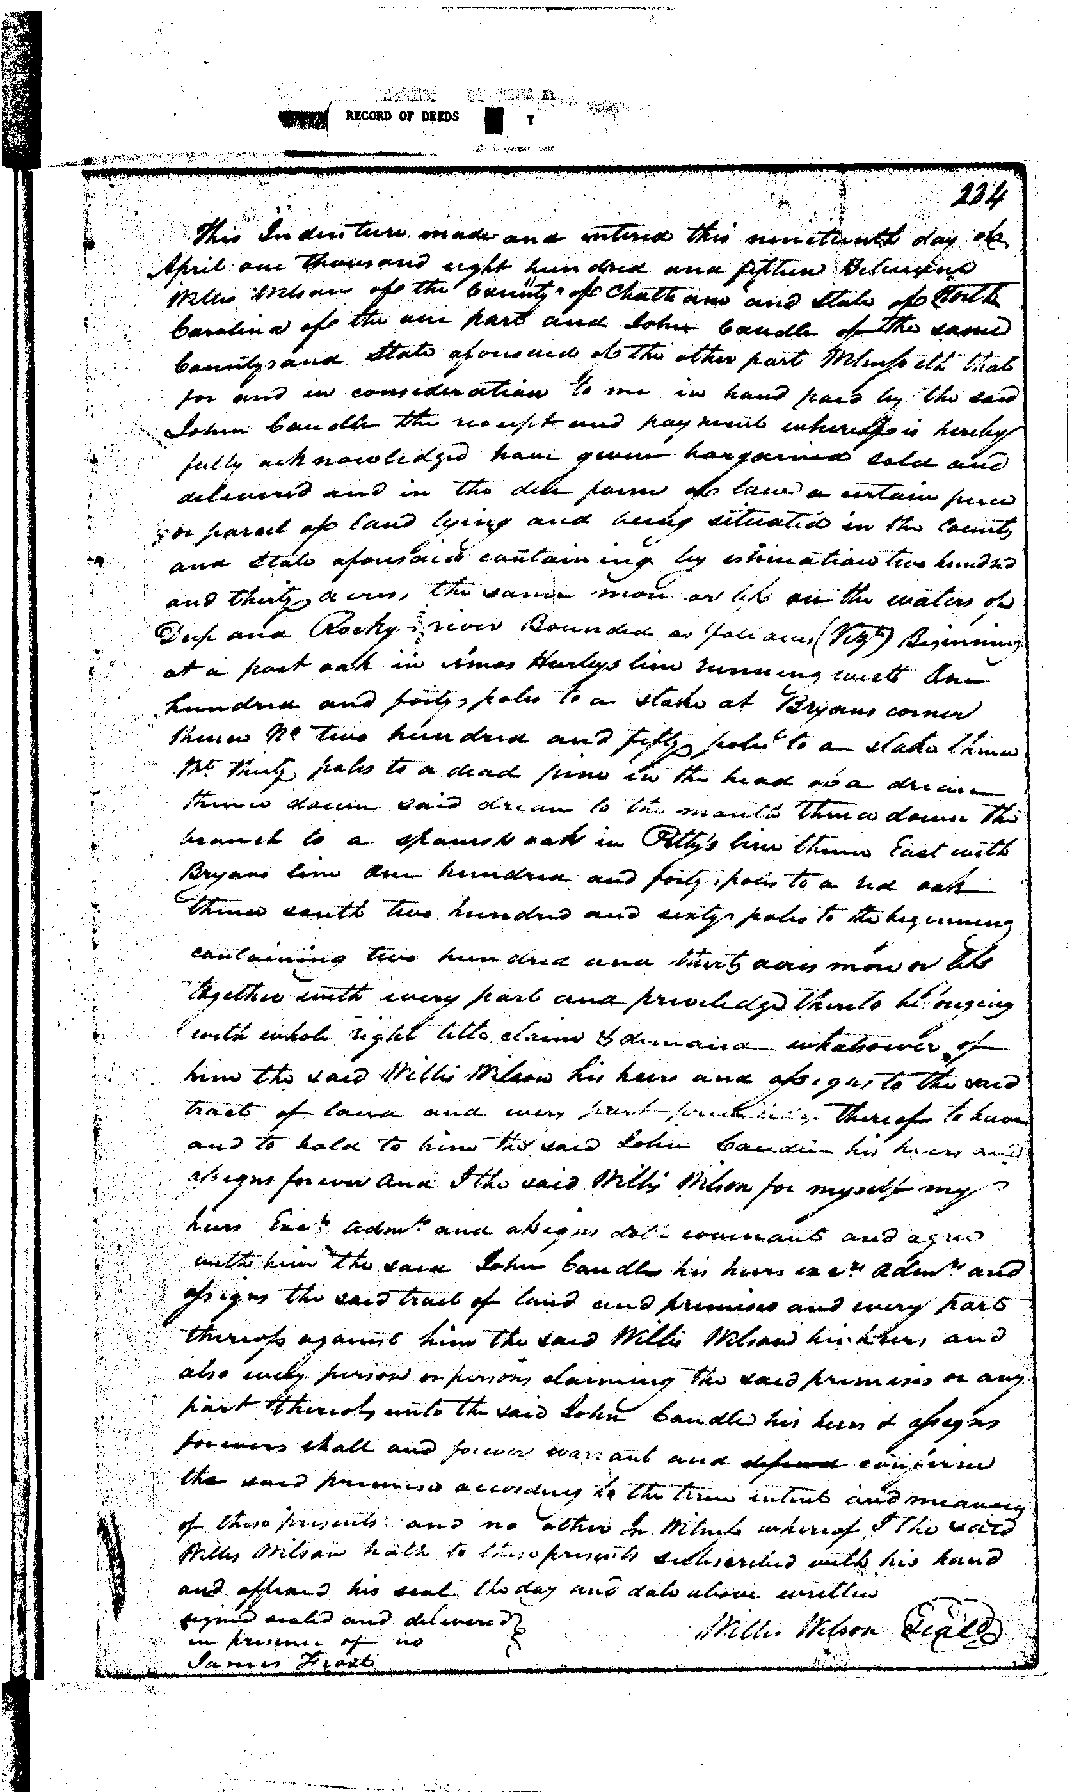 RECORD OF DEEDS T
234
This Indenture made and entered this nineteenth day of
April one thousand eight hundred and fifteen Between
Willis Wilson of the County of Chatham and State of North
Carolina of the one part and John Caudle of the same
County and State aforesaid of the other part Witnesseth that
for and in consideration to me in hand paid by the said
John Caudle the receipt and payment whereof is hereby
fully acknowledged have given bargained sold and
delivered and in the due form of law a certain piece
or parcel of land lying and being situated in the County
and State aforesaid containing by estimation two hundred
and thirty acres, the same more or less on the waters of
Deep and Rocky river Bounded as follows (Viz) Beginning
at a post oak in Amos Hurleys line running west One
hundred and forty poles to a stake at Bryans corner
thence No two hundred and fifty poles to a stake thence
Wt thirty poles to a dead pine in the head of a drean
thence down said drean to the mouth thence down the
branch to a spanish oak in Petty's line thence East with
Bryans line One hundred and forty poles to a red oak
thence south two hundred and sixty poles to the beginning
containing two hundred and thirty acres more or less
together with every part and priveledge thereto belonging
with whole right title claim & demand whatsoever of
him the said Willis Wilson his heirs and assigns to the said
tract of land and every part thereof to have
and to hold to him the said John Caudle his heirs and
assigns forever And I the said Willis Wilson for myself my
heirs Exrs Admrs and assigns doth covenant and agree
with him the said John Caudle his heirs exrs Admrs and
assigns the said tract of land and premises and every part
thereof against him the said Willis Wilson his heirs, and
also every person or persons claiming the said premises or any
part thereof unto the said John Caudle his heirs & assigns
forevers shall and forever warrant and defend
the said premises according to the true intent and meaning
of these presents and no other In Witness whereof I the said
Willis Wilson hath to these presents subscribed with his hand
and affixed his seal the day and date above written
signed sealed and delivered
in presence of us
Willis Wilson (Seal)
James Frost